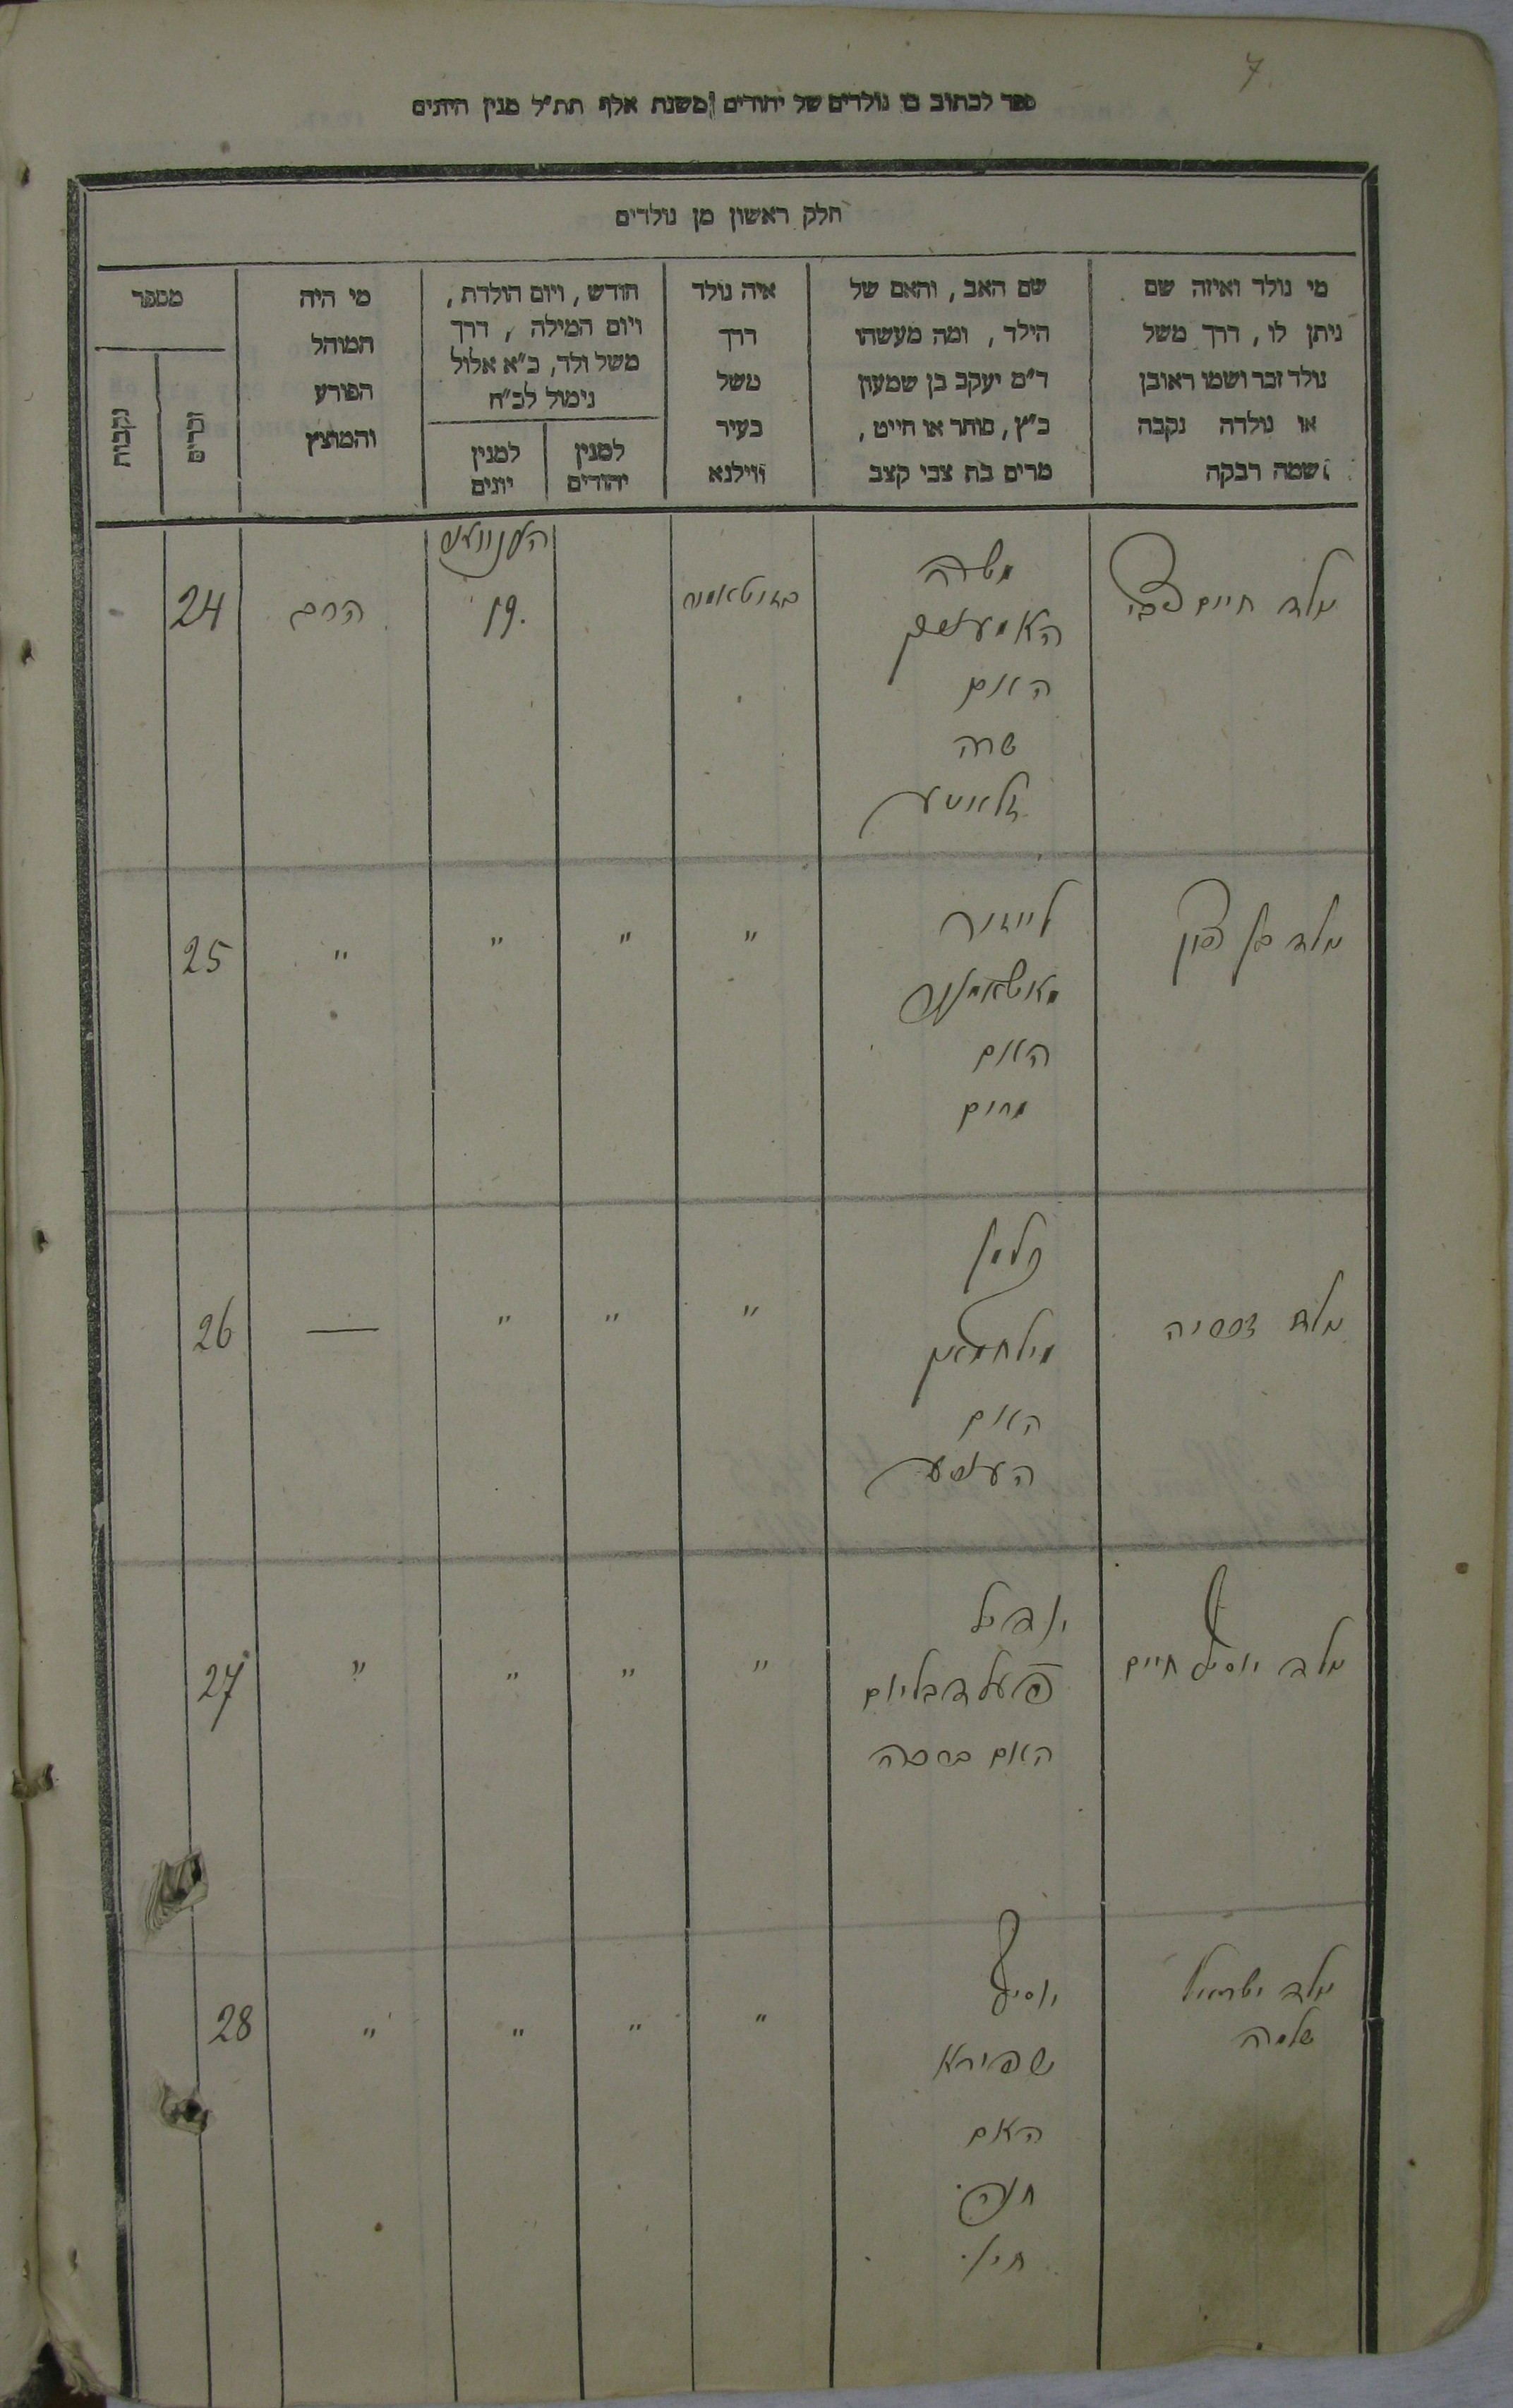 7
ספר לכתוב בו נולדים של יהודים משנת אלף תת״ל מנין היונים
חלק ראשון מן נולדים
מי נולד ואיזה שם
ניתן לו, דרך משל
נולד זכר ושמו ראובן
או נולדה נקבה
ושמה רבקה
שם האב, והאם של
הילד, ומה מעשהו
ד״מ יעקב בן שמעון
כ״ץ, סוחר או חייט,
מרים בת צבי קצב
איה נולד
דרך
משל
בעיר
ווילנא
חודש, ויום הולדת,
ויום המילה, דרך
משל ולד, כ״א אלול
נימול לכ״ח
למנין
יהודים
למנין
יונים
מי היה
המוהל
הפורע
והמוצץ
מספר
זכרים
נקבות
נולד חיים צבי
משה
האם
שרה
זלאטע
19.
הרב
24
נולד בן ציון
לייזער
האם
מרים
"
"
"
"
25
נולד
קלמן
מילחמאן
האם
"
"
"
—
26
נולד יוסף חיים
האם ברכה
"
"
"
"
27
נולד ישראל
שלמה
יוסף
שפירא
האם
חנה
"
"
"
"
28